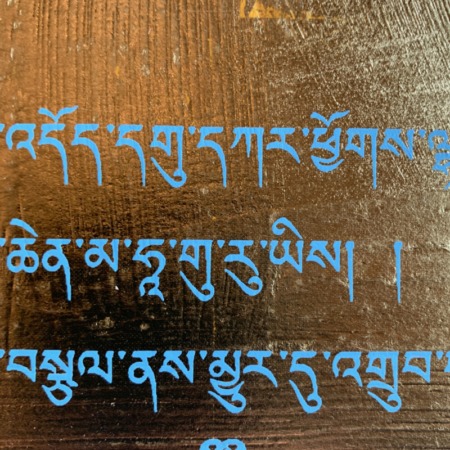 འདོད་དགུ་དཀར་ཕྱོགས་ལྷ
ཆེན་མ་ཧཱ་གུ་རུ་ཡིས། །
བསྐུལ་ནས་མྱུར་དུ་འགྲུབ་